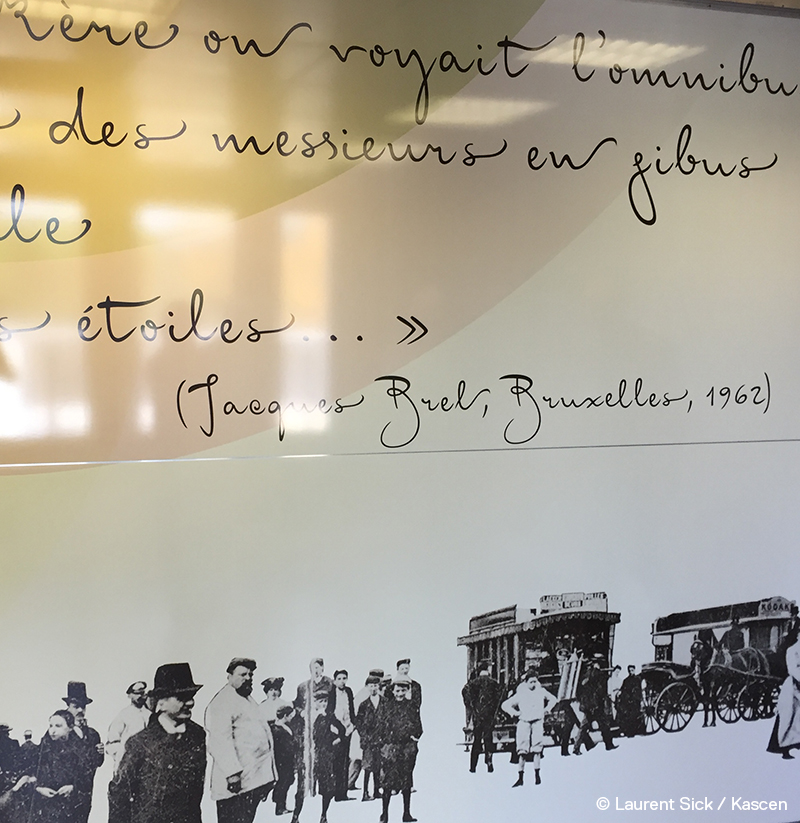 Brère on voyait l'omnibu
des messieurs en gibus
le
s étoiles... »
(Jacques Brel, Bruxelles, 1962)
KODAK
© Laurent Sick / Kascen